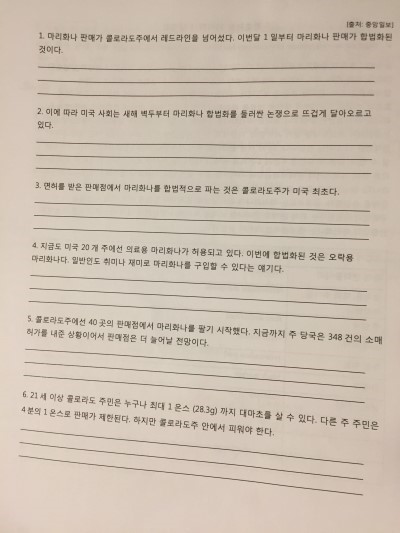 [출처: 중앙일보]
1. 마리화나 판매가 콜로라도주에서 레드라인을 넘어섰다. 이번달 1 일부터 마리화나 판매가 합법화된
것이다.
2. 이에 따라 미국 사회는 새해 벽두부터 마리화나 합법화를 둘러싼 논쟁으로 뜨겁게 달아오르고
있다.
3. 면허를 받은 판매점에서 마리화나를 합법적으로 파는 것은 콜로라도주가 미국 최초다.
4. 지금도 미국 20 개 주에선 의료용 마리화나가 허용되고 있다. 이번에 합법화된 것은 오락용
마리화나다. 일반인도 취미나 재미로 마리화나를 구입할 수 있다는 얘기다.
5. 콜로라도주에선 40 곳의 판매점에서 마리화나를 팔기 시작했다. 지금까지 주 당국은 348 건의 소매
허가를 내준 상황이어서 판매점은 더 늘어날 전망이다.
6. 21 세 이상 콜로라도 주민은 누구나 최대 1 온스 (28.3g) 까지 대마초를 살 수 있다. 다른 주 주민은
4 분의 1 온스로 판매가 제한된다. 하지만 콜로라도주 안에서 피워야 한다.